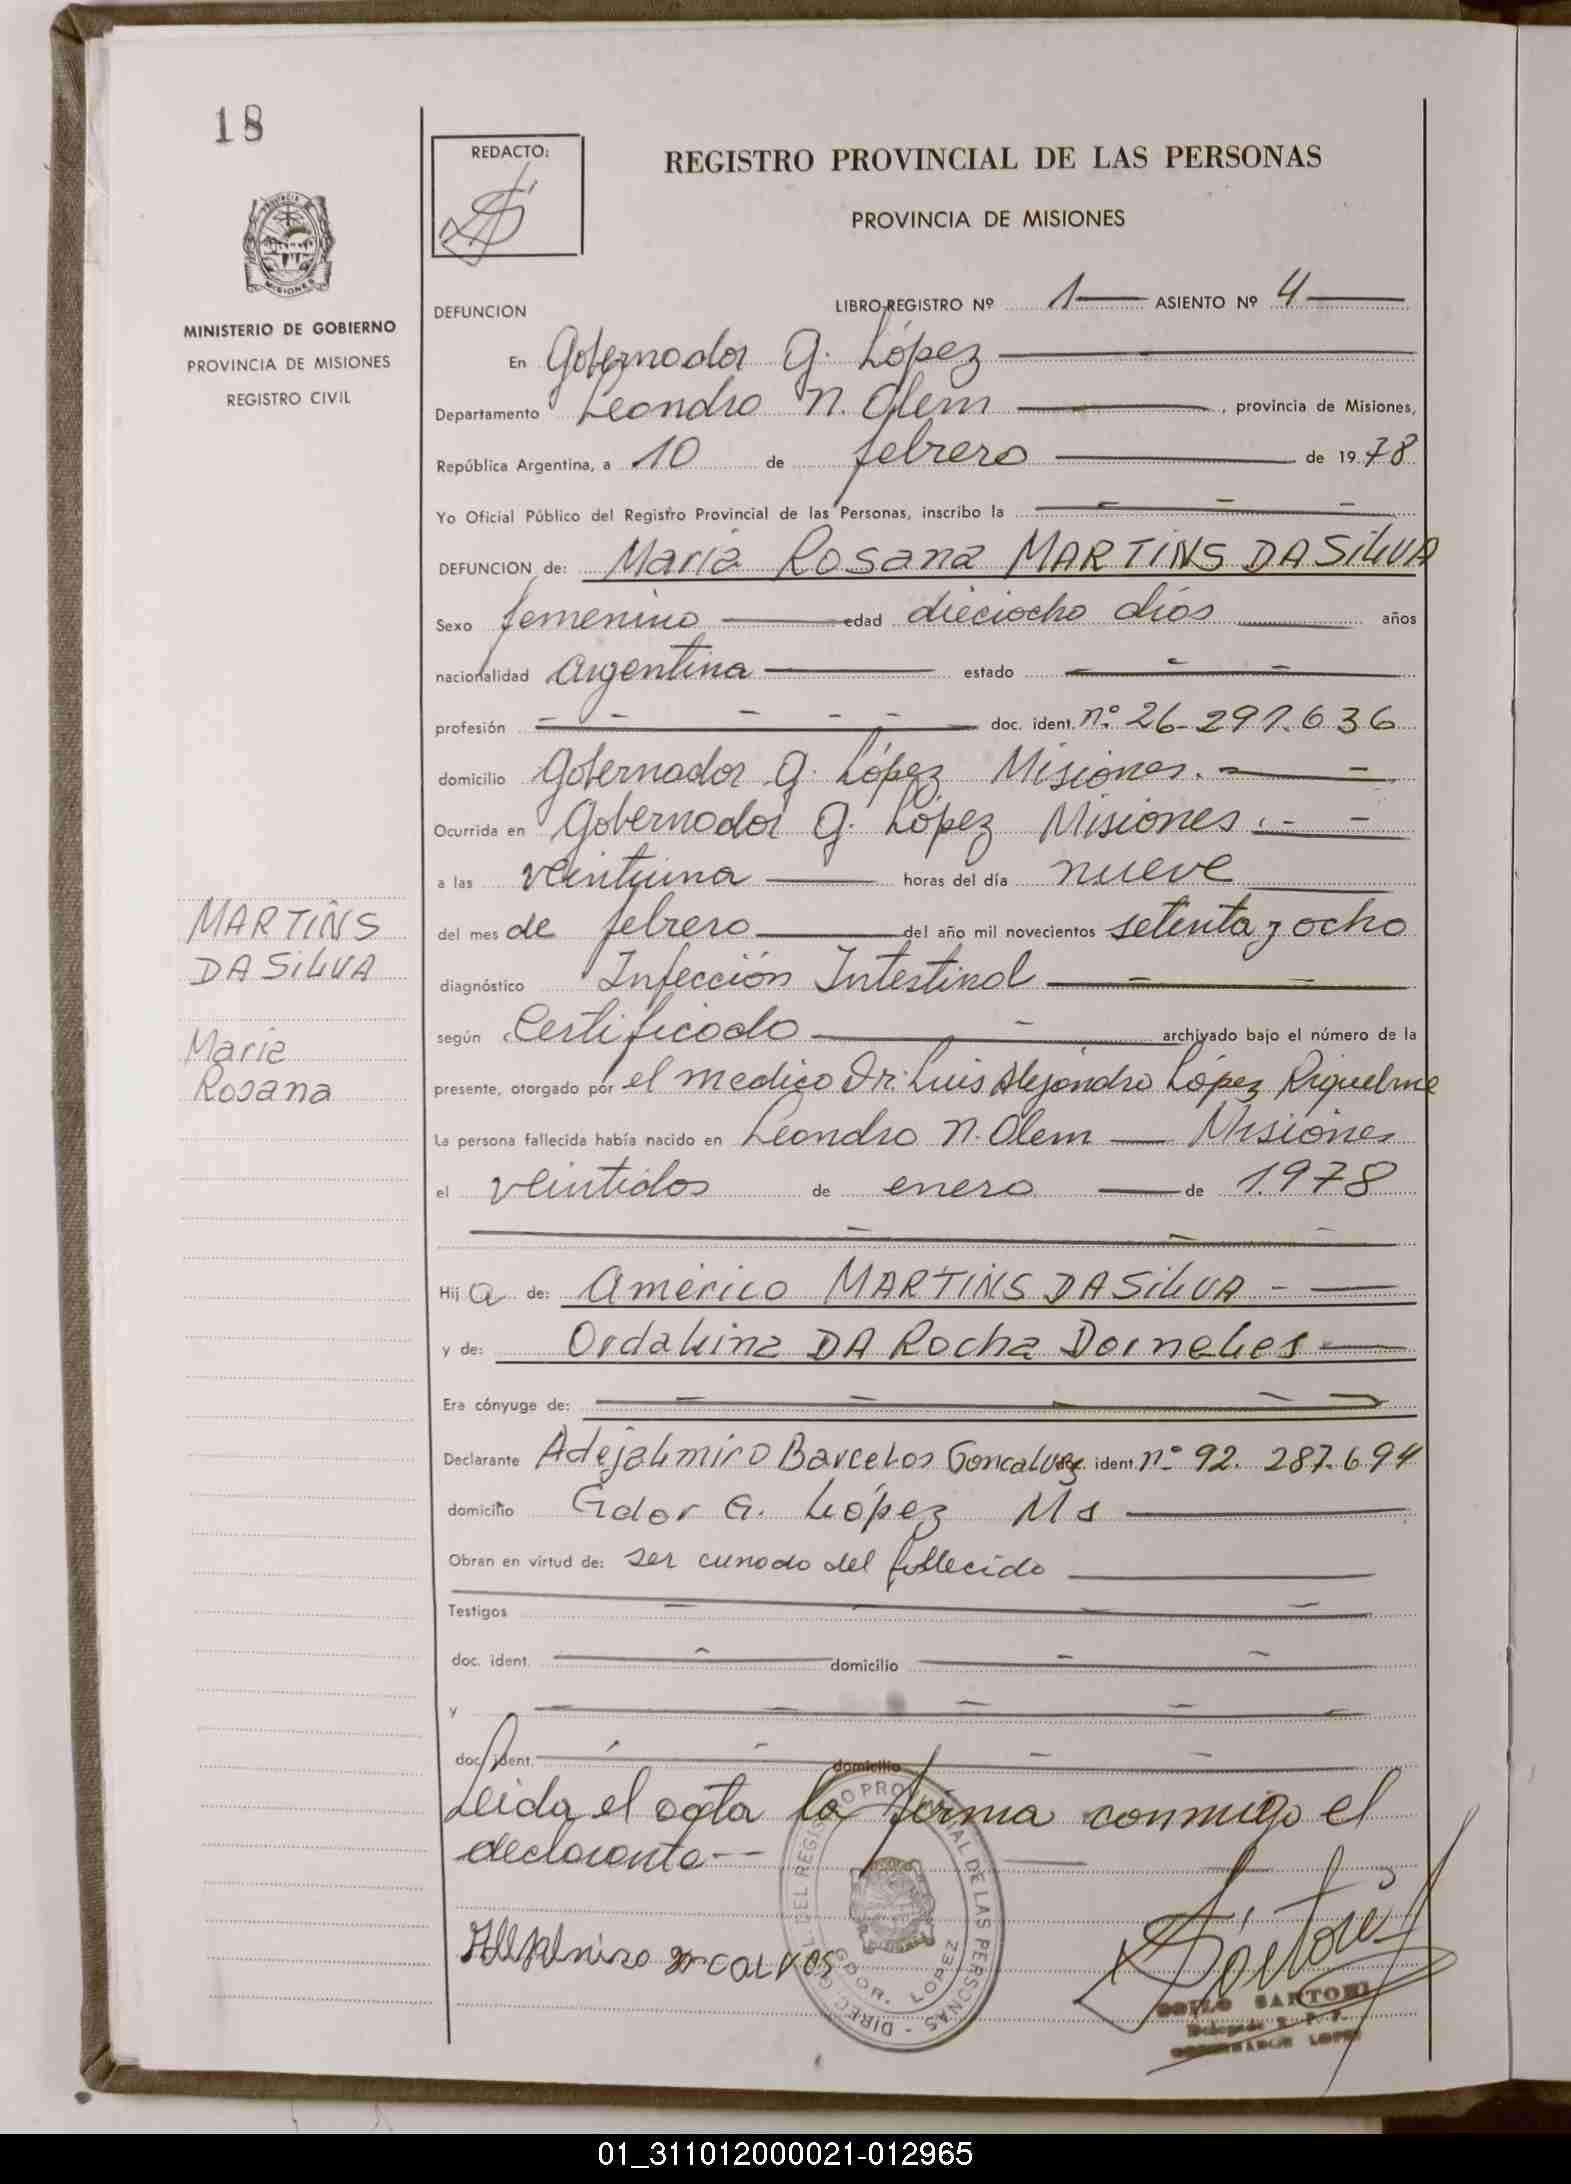 18
REDACTO:
REGISTRO PROVINCIAL DE LAS PERSONAS
PROVINCIA DE MISIONES
MINISTERIO DE GOBIERNO
PROVINCIA DE MISIONES
REGISTRO CIVIL
DEFUNCION
LIBRO-REGISTRO Nº 1 ASIENTO Nº 4
En Gobernador G. López
Departamento Leandro N. Alem, provincia de Misiones,
República Argentina, a 10 de febrero de 1978
Yo Oficial Público del Registro Provincial de las Personas, inscribo la
DEFUNCION de: María Rosana MARTINS DA SILVA
Sexo femenino edad dieciocho días años
nacionalidad argentina estado
profesión doc. ident. nº 26-291.636
domicilio Gobernador G. López Misiones.
Ocurrida en Gobernador G. López Misiones.
a las veintiuna horas del día nueve
del mes de febrero del año mil novecientos setenta y ocho
diagnóstico Infección Intestinal
según Certificado archivado bajo el número de la
presente, otorgado por el medico Dr. Luis Alejandro López Riquelme
La persona fallecida había nacido en Leandro N. Alem Misiones
el veintidos de enero de 1.978
Hija de: Américo MARTINS DA SILVA
y de: Ordalina DA Rocha Dorneles
Era cónyuge de:
Declarante Adejalmiro Barcelos Goncalvez doc. ident. nº 92.287.694
domicilio Gdor G. López Ms
Obran en virtud de: ser cunado del fallecido
Testigos
doc. ident. domicilio
y
doc. ident. domicilio
Leida el acta la firma conmigo el
declarante--
MARTINS
DA SILVA
María
Rosana
DIREC. G. DEL REGISTRO PROVINCIAL DE LAS PERSONAS
GDOR. LOPEZ
SARTORI
GOBERNADOR LOPEZ
01_311012000021-012965